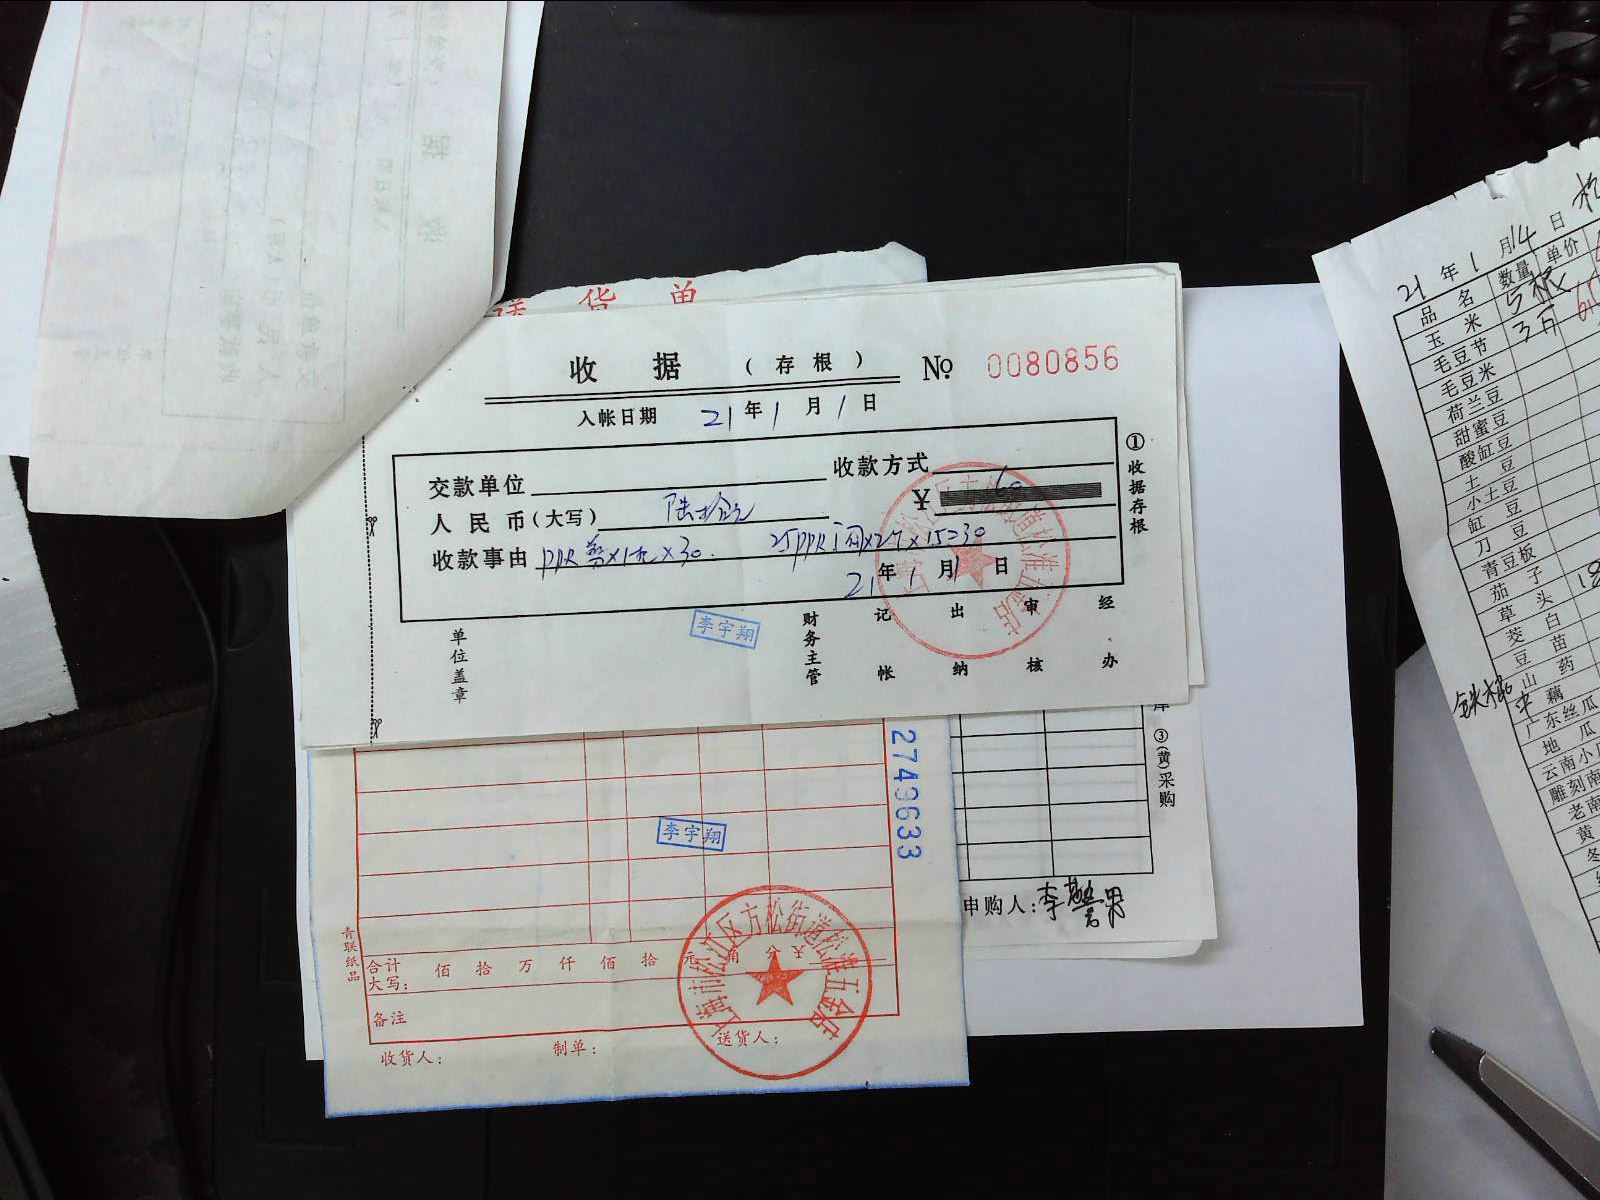 送货单
收 据 (存根) № 0080856
入帐日期 21年1月1日
交款单位
收款方式
人民币(大写) 陆拾元
¥ 60
收款事由 PPR剪×1把×30. 25PPR门阀×2个×15=30
21年1月1日
①收据存根
单位盖章
李宇翔
财务主管
记帐
出纳
审核
经办
2749633
李宇翔
青联纸品
合计大写: 佰 拾 万 仟 佰 拾 元 角 分 ¥
备注
收货人:
制单:
送货人:
上海市松江区方松街道松淮五金店
③(黄)采购
申购人:
21年1月14日
品名 数量 单价
玉米 5根
毛豆节 3斤
毛豆米
荷兰豆
甜蜜豆
酸缸豆
土豆
小土豆
缸豆
刀豆
青豆板
茄子
草头
茭白
豆苗
山药
藕
广东丝瓜
地瓜
云南小
雕刻南
老南
黄
冬